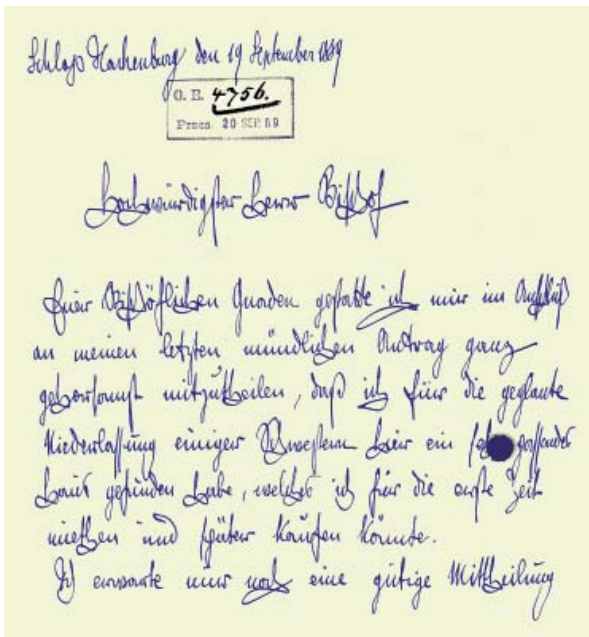 Schloß Hachenburg den 19 September 1889
O. E. 4756.
Praes. 20 SEP. 89
Hochwürdigster Herr Bischof
Euer Bischöflichen Gnaden gestatte ich mir im Anschluß
an meinen letzten mündlichen Antrag ganz
gehorsamst mitzutheilen, daß ich für die geplante
Niederlassung einiger Schwestern hier ein passendes
Haus gefunden habe, welches ich für die erste Zeit
miethen und später kaufen könnte.
Ich erwarte nur noch eine gütige Mittheilung